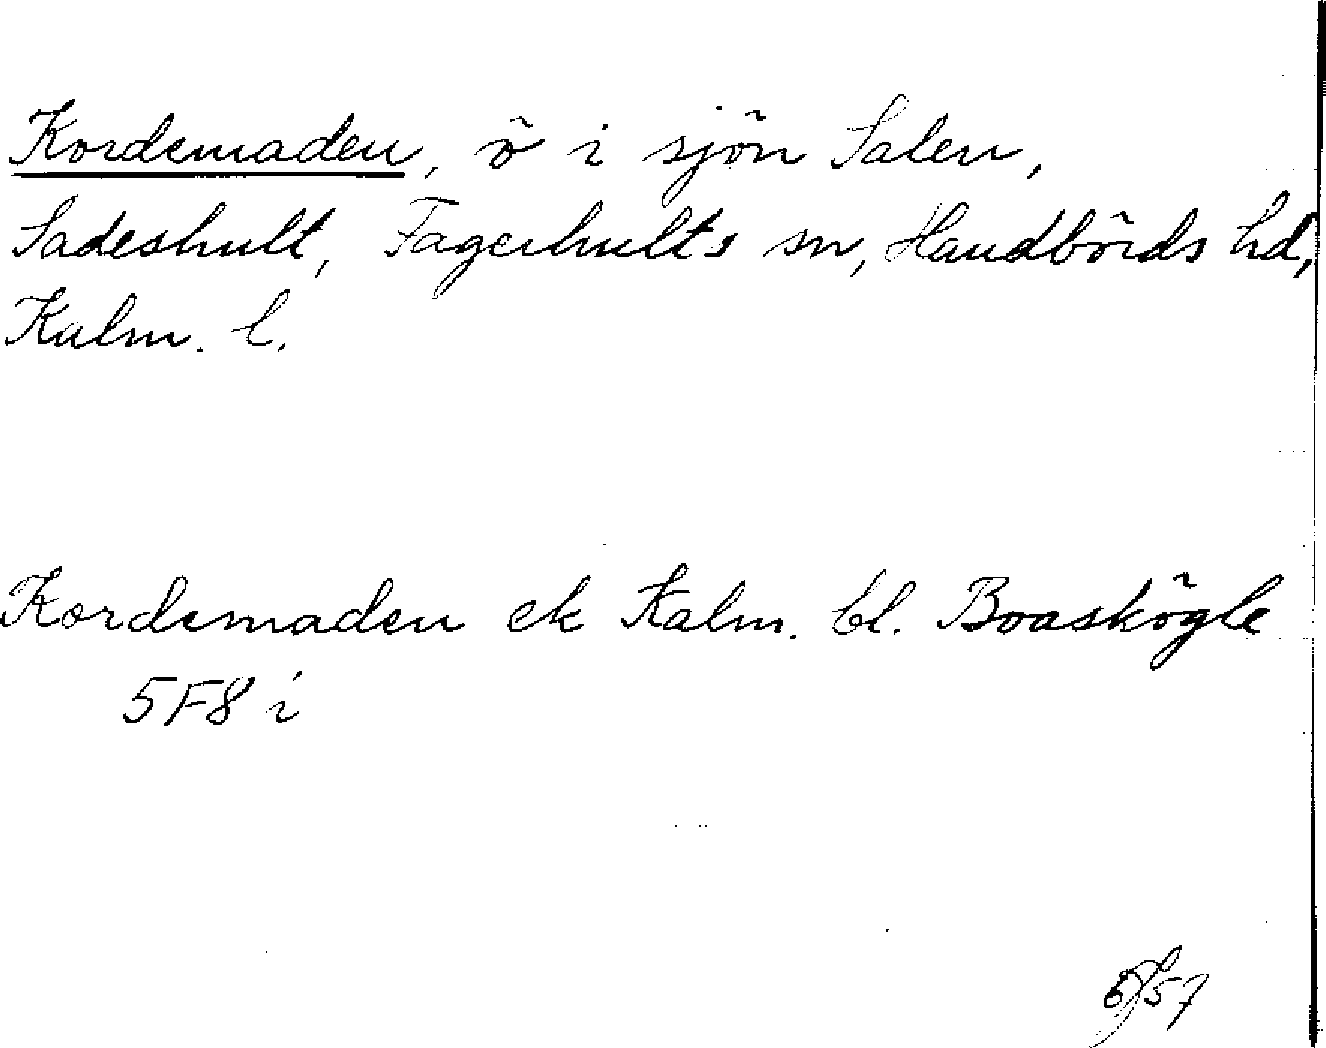 Kordemaden, ö i sjön Salen,
Sadeshult, Fagerhults sn, Handbörds hd,
Kalm. l.
Kordemaden ek Kalm. bl. Boaskögle
5F8 i